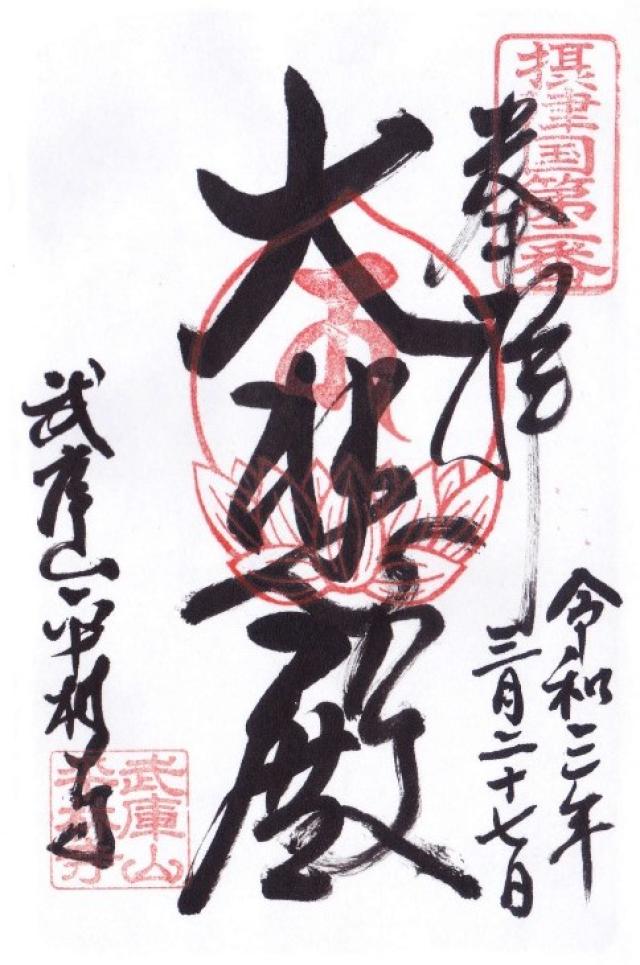 摂津国第三番
奉拝
令和三年
三月二十七日
大悲殿
武庫山平林寺
武庫山